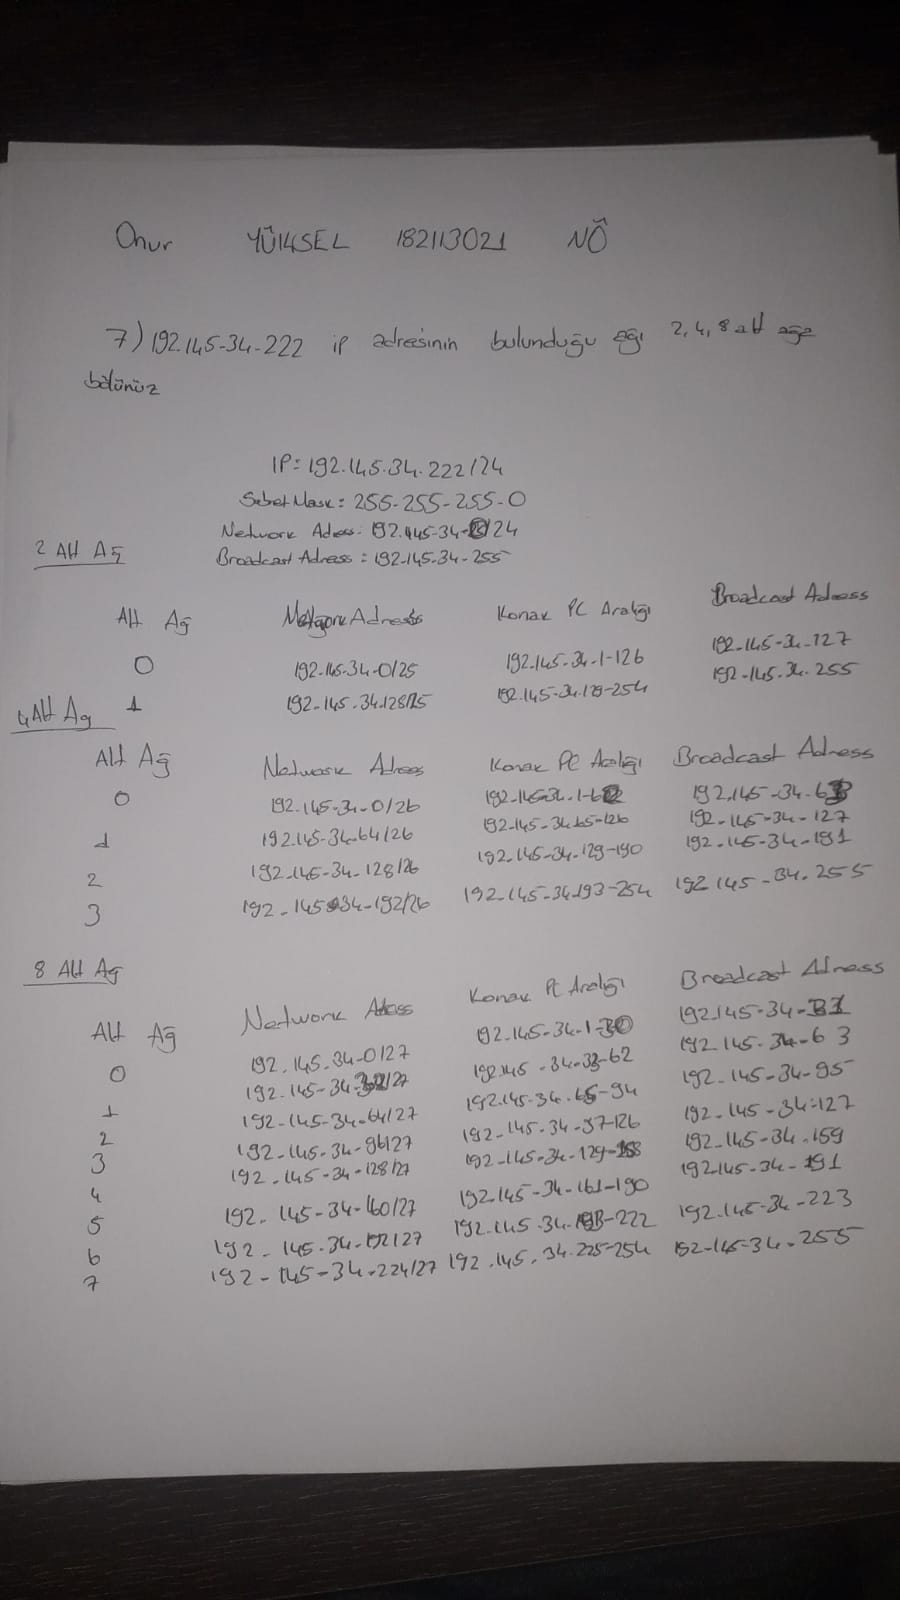 Onur YÜKSEL 182113021 NÖ
7) 192.145-34-222 ip adresinin bulunduğu ağı 2, 4, 8 alt ağa
bölünüz
IP: 192.145.34.222/24
Subet Mask: 255-255-255-0
Network Adess: 192.145-34- /24
Broadcast Adress: 192-145-34-255
2 Alt Ağ
Alt Ağ Adress Konak PC Aralığı Broadcast Adress
0 192.145-34-0/25 192.145-34-1-126 192-145-34-127
1 192-145.34.128/25 192-145-34.129-254 192-145.34.255
4 Alt Ağ
Alt Ağ Network Adress Konak PC Aralığı Broadcast Adress
0 192.145-34-0/26 192-145-34.1-62 192.145-34-63
1 192.145-34-64/26 192-145-34.65-126 192-145-34-127
2 192-145-34-128/26 192-145-34-129-190 192-145-34-191
3 192-145-34-192/26 192-145-34-193-254 192 145-34.255
8 Alt Ağ
Alt Ağ Network Adess Konak PC Aralığı Broadcast Adress
0 192.145.34-0/27 192-145-34-1-30 192.145-34-31
1 192.145-34-32/27 192.145-34-33-62 192.145.34-63
2 192-145-34-64/27 192.145-34.65-94 192-145-34-95
3 192-145-34-96/27 192-145-34-97-126 192-145-34-127
4 192-145-34-128/27 192-145-34-129-158 192-145-34.159
5 192.145-34-160/27 192.145-34-161-190 192.145-34-191
6 192-145.34-192/27 192.145.34.193-222 192.145-34-223
7 192-145-34-224/27 192.145.34.225-254 192-145-34.255